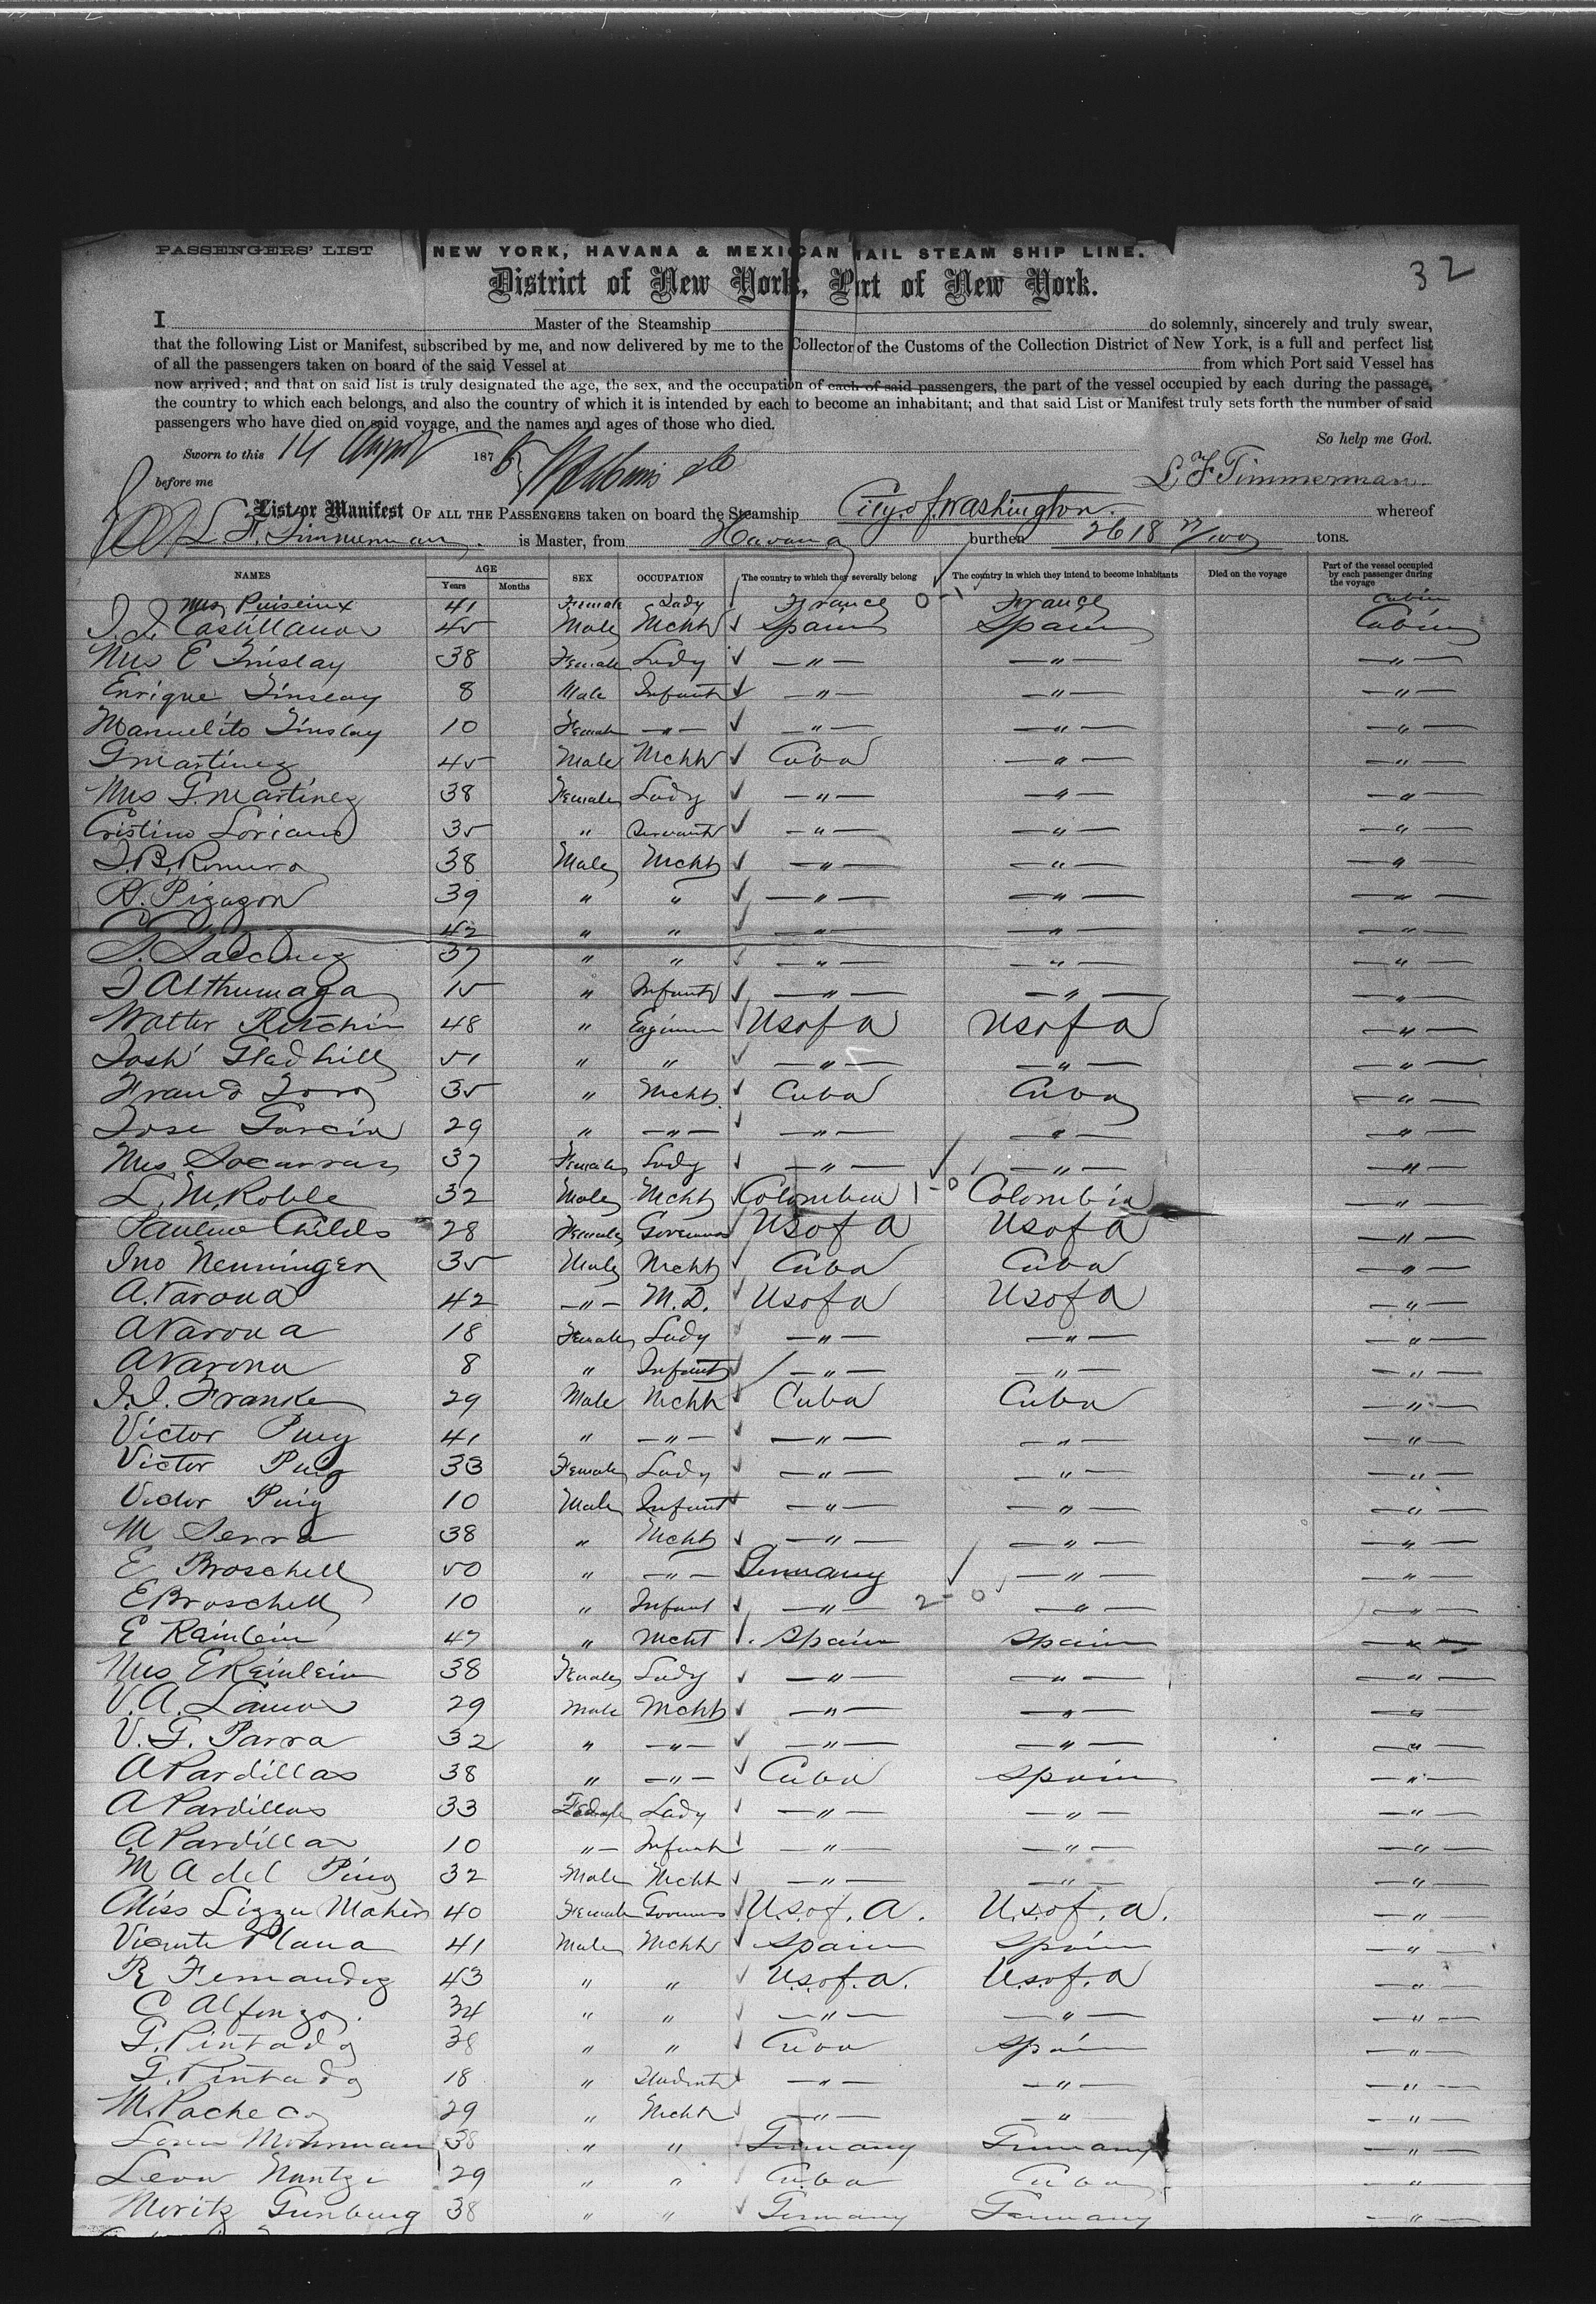 PASSENGERS' LIST NEW YORK, HAVANA & MEXICAN MAIL STEAM SHIP LINE.
32
District of New York, Port of New York.
I Master of the Steamship do solemnly, sincerely and truly swear,
that the following List or Manifest, subscribed by me, and now delivered by me to the Collector of the Customs of the Collection District of New York, is a full and perfect list
of all the passengers taken on board of the said Vessel at from which Port said Vessel has
now arrived; and that on said list is truly designated the age, the sex, and the occupation of each of said passengers, the part of the vessel occupied by each during the passage,
the country to which each belongs, and also the country of which it is intended by each to become an inhabitant; and that said List or Manifest truly sets forth the number of said
passengers who have died on said voyage, and the names and ages of those who died.
So help me God.
Sworn to this 14 August 187
before me L F Timmerman
List or Manifest OF ALL THE PASSENGERS taken on board the Steamship City of Washington. whereof
L. F. Timmerman is Master, from Havana burthen 2618 tons.
NAMES AGE Years Months SEX OCCUPATION The country to which they severally belong The country in which they intend to become inhabitants Died on the voyage Part of the vessel occupied by each passenger during the voyage
Mrs Puiseinx 41 Female Lady France 0-1 France Cabin
J. J. Castillanos 45 Male Mcht Spain Spain Cabin
Mrs E Tinslay 38 Female Lady " " "
Enrique Tinslay 8 Male Infant " " "
Manuelito Tinslay 10 Female " " " "
G Martinez 45 Male Mcht Cuba " "
Mrs G. Martinez 38 Female Lady " " "
Cristino Soriano 35 " Servant " " "
J. B. Romero 38 Male Mcht " " "
R. Pizazon 39 " " " " "
42 " " " " "
37 " " " " "
15 " Infant " " "
Walter Ritchin 48 " Engineer U S of A U S of A "
Josh Gladhill 51 " " " " "
35 " Mcht Cuba Cuba "
Jose Garcia 29 " " " " "
Mrs Socarras 37 Female Lady " " "
L. M. Roble 32 Male Mcht Colombia 1-0 Colombia "
Pauline Childs 28 Female Governess U S of A U S of A "
Jno Nenninger 35 Male Mcht Cuba Cuba "
A. Varona 42 " M.D. U S of A U S of A "
A Varona 18 Female Lady " " "
A Varona 8 " Infant " " "
J. J. Franke 29 Male Mcht Cuba Cuba "
Victor Puig 41 " " " " "
Victor Puig 33 Female Lady " " "
Victor Puig 10 Male Infant " " "
M Serra 38 " Mcht " " "
E Broschell 50 " " Germany " "
E Broschell 10 " Infant " 2-0 " "
E Rainlein 47 " Mcht Spain Spain "
Mrs E Reinlein 38 Female Lady " " "
V. A. 29 Male Mcht " " "
V. G. Parra 32 " " " " "
A Pardillas 38 " " Cuba Spain "
A Pardillas 33 Female Lady " " "
A Pardillas 10 " Infant " " "
M A del Puig 32 Male Mcht " " "
Miss Lizzie Mahin 40 Female Governess U.S. of. A. U.S. of. A. "
Vicente Plana 41 Male Mcht Spain Spain "
R Fernandez 43 " " U.S. of. A. U.S. of. A "
C Alfonzo. 34 " " " " "
G. Pintado 38 " " Cuba Spain "
G. Pintado 18 " Student " " "
M. Pacheco 29 " Mcht " " "
Mohrman 38 " " Germany Germany "
Leon 29 " " Cuba Cuba "
Moritz Gunburg 38 " " Germany Germany "